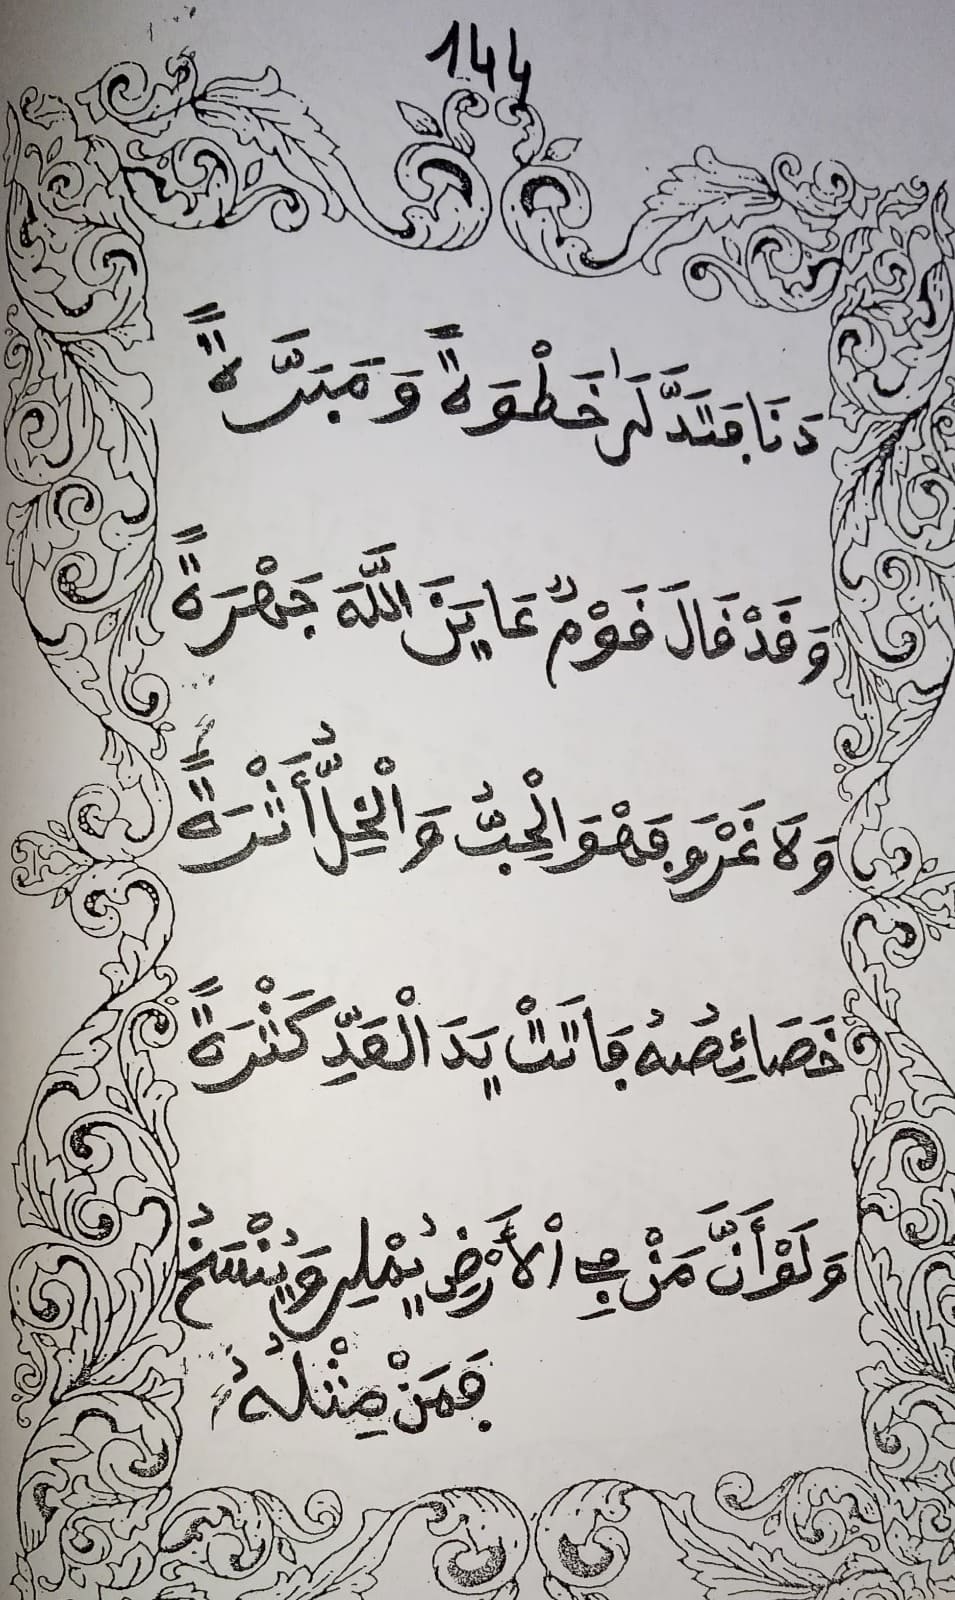 144
دَنَا فَتَدَلَّى خَطْوَةً وَمَبَرَّةً
وَقَدْ قَالَ قَوْمٌ عَايَنَ اللَّهَ جَهْرَةً
وَلَا غَرْوَ فَهْوَ الْحِبُّ وَالْخِلُّ أَثْرَةً
خَصَائِصُهُ فَاتَتْ يَدَ الْعَدِّ كَثْرَةً
وَلَوْ أَنَّ مَنْ فِي الْأَرْضِ يُمْلِي وَيُنْسَخُ
فَمَنْ مِثْلُهُ